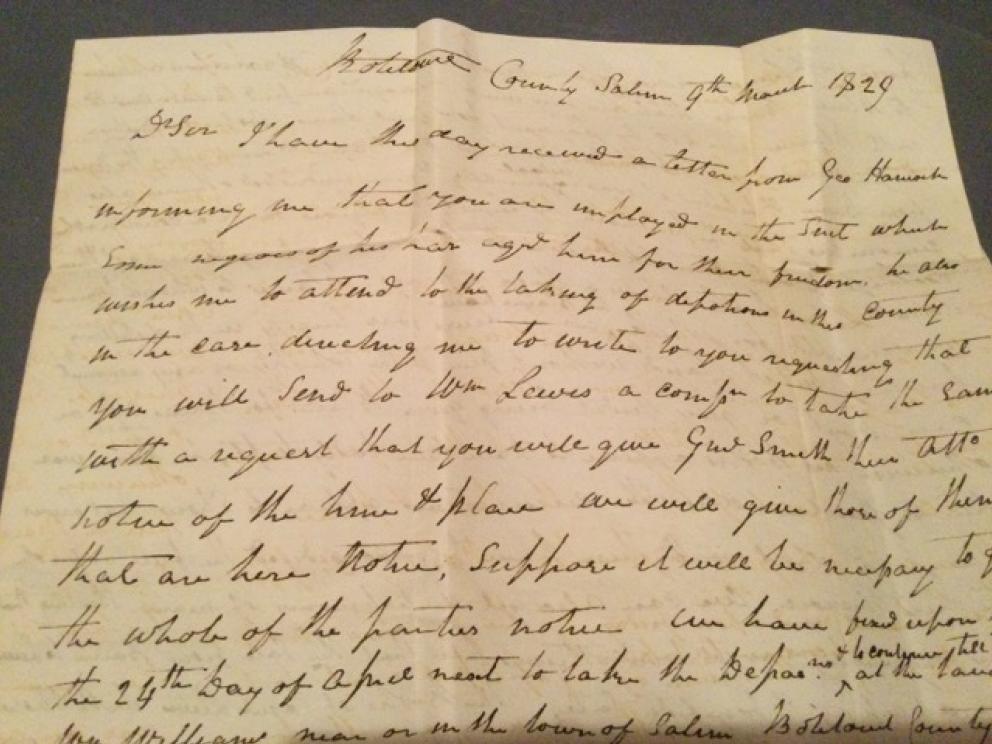 County Salem 9th March 1829
Dr Sir I have this day received a letter from Geo Hancock
informing me that you are imployed in the Suit which
Some negroes of his has aged him for their freedom. he also
wishes me to attend to the taking of depotions in this County
in the case, directing me to write to you requesting that
you will Send to Wm Lewis a comsn to take the Sam
with a request that you will give Smith their Atto
notice of the time & place we will give those of them
that are here Notice, Suppose it will be necessary to g
the whole of the parties notice we have fixed upon
the 24th Day of April next to take the & to continue till at the
Williams near or in the town of Salem County